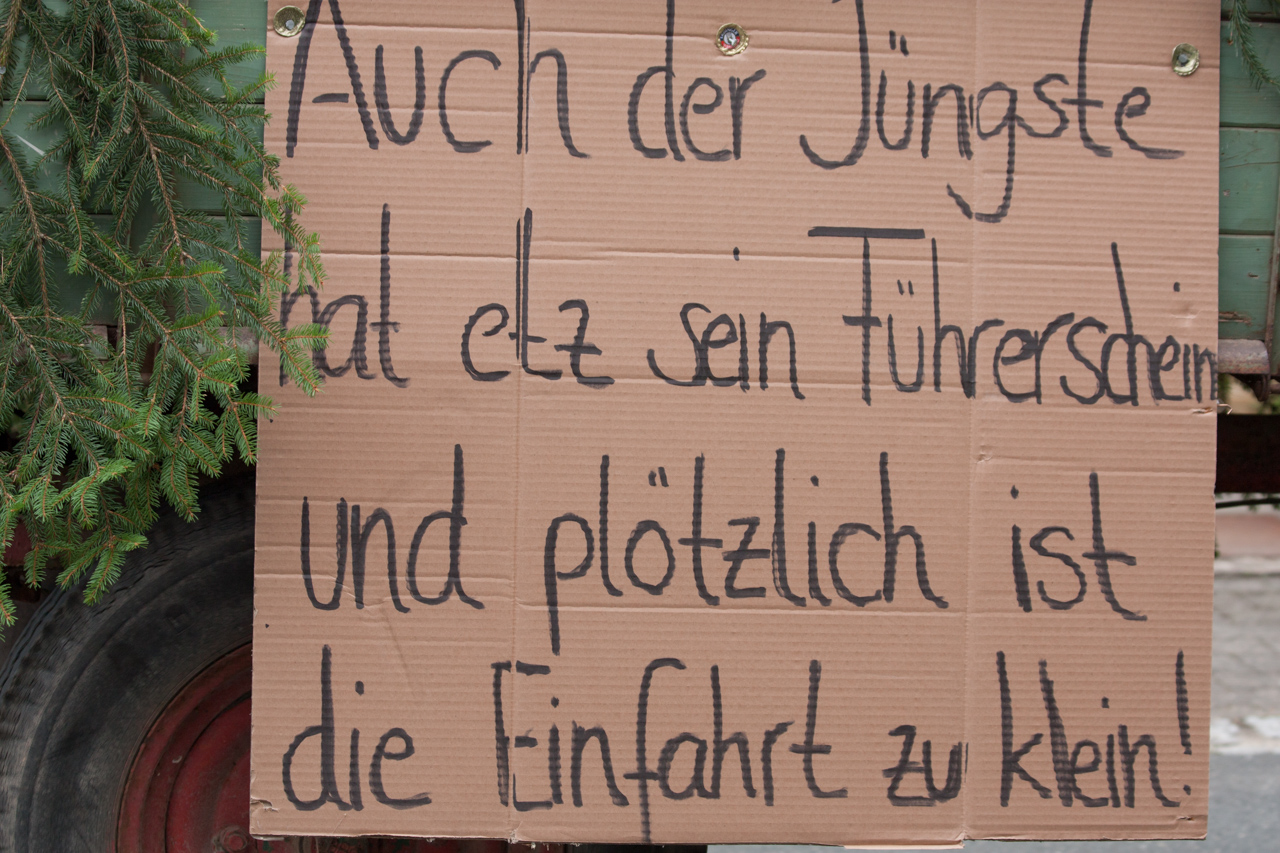 Auch der Jüngste
hat etz sein Führerschein
und plötzlich ist
die Einfahrt zu klein!